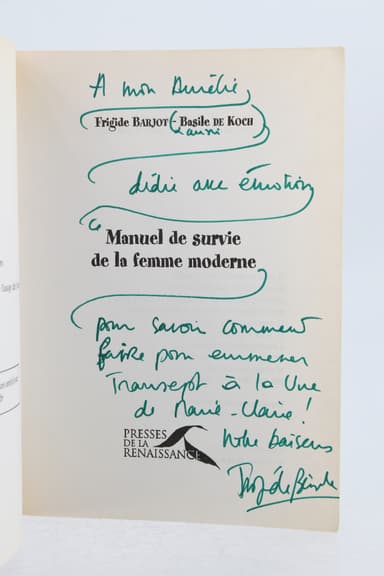 A mon Aurélie,
Frigide BARJOT - Basile DE KOCH
aussi
dédie avec émotion
ce
Manuel de survie
de la femme moderne
pour savoir comment
faire pour emmener
Transept à la Une
de Marie-Claire !
PRESSES
DE LA
RENAISSANCE
baisers